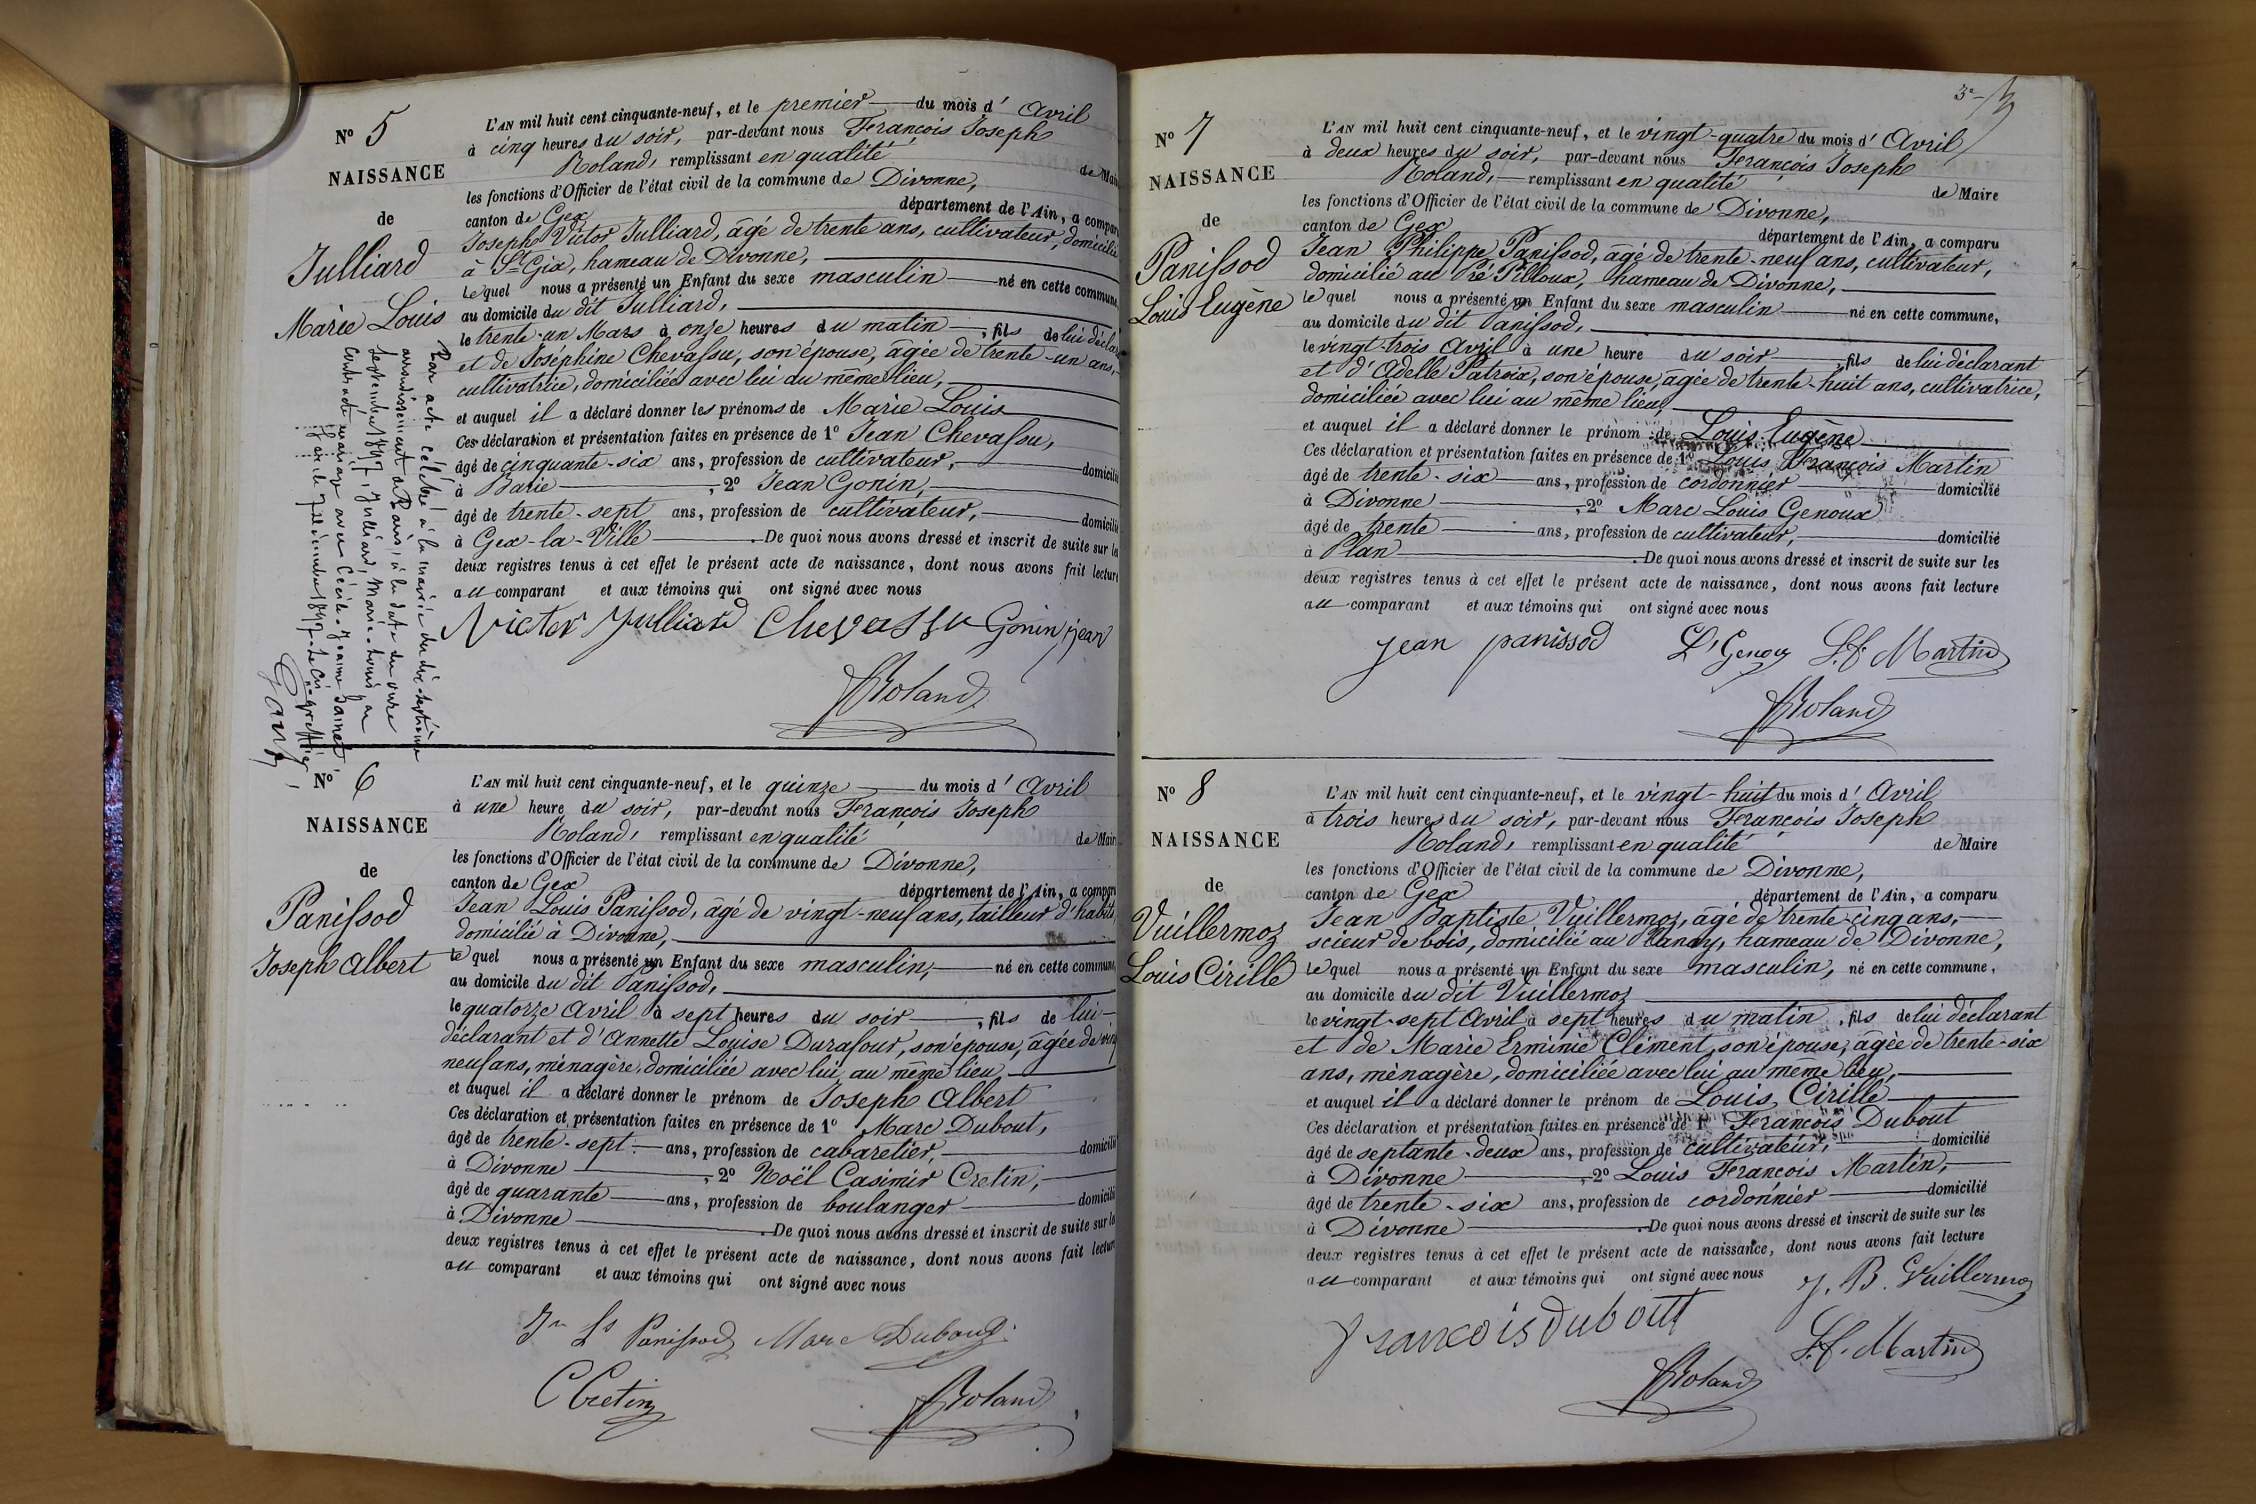 N° 5
NAISSANCE
de
Julliard
Marie Louis
L'AN mil huit cent cinquante-neuf, et le premier du mois d' Avril
à cinq heures du soir, par-devant nous François Joseph
Roland, remplissant en qualité de Mai
les fonctions d'Officier de l'état civil de la commune de Divonne,
canton de Gex département de l'Ain, a compar
Joseph Victor Julliard, âgé de trente ans, cultivateur, domicilié
à St Gix, hameau de Divonne,
lequel nous a présenté un Enfant du sexe masculin né en cette commune
au domicile du dit Julliard,
le trente-un Mars à onze heures du matin, fils de lui décla
et de Joséphine Chevassu, son épouse, âgée de trente-un ans,
cultivatrice, domiciliée avec lui au même lieu,
et auquel il a déclaré donner les prénoms de Marie Louis
Ces déclaration et présentation faites en présence de 1° Jean Chevassu,
âgé de cinquante-six ans, profession de cultivateur, domicilié
à Barie, 2° Jean Gonin,
âgé de trente-sept ans, profession de cultivateur, domicilié
à Gex-la-Ville. De quoi nous avons dressé et inscrit de suite sur les
deux registres tenus à cet effet le présent acte de naissance, dont nous avons fait lecture
au comparant et aux témoins qui ont signé avec nous
Victor Julliard Chevassu Gonin jean
Roland
Par acte célébré à la mairie du dix-septième
arrondissement à Paris, à la date du onze
septembre 1897, Julliard, Marie-Louis a
contracté mariage avec Cécile-Jeanne Jainet
Gex le décembre 1897. Le Cis-greffier,
N° 6
NAISSANCE
de
Panissod
Joseph Albert
L'AN mil huit cent cinquante-neuf, et le quinze du mois d' Avril
à une heure du soir, par-devant nous François Joseph
Roland, remplissant en qualité de Mair
les fonctions d'Officier de l'état civil de la commune de Divonne,
canton de Gex département de l'Ain, a compar
Jean Louis Panissod, âgé de vingt-neuf ans, tailleur d'habits
domicilié à Divonne,
lequel nous a présenté un Enfant du sexe masculin, né en cette commune,
au domicile du dit Panissod,
le quatorze Avril à sept heures du soir, fils de lui
déclarant et d'Annette Louise Durafour, son épouse, âgée de ving
neuf ans, ménagère, domiciliée avec lui au même lieu
et auquel il a déclaré donner le prénom de Joseph Albert
Ces déclaration et présentation faites en présence de 1° Marc Dubout,
âgé de trente-sept ans, profession de cabaretier, domicilié
à Divonne, 2° Noël Casimir Cretin,
âgé de quarante ans, profession de boulanger domicilié
à Divonne. De quoi nous avons dressé et inscrit de suite sur les
deux registres tenus à cet effet le présent acte de naissance, dont nous avons fait lecture
au comparant et aux témoins qui ont signé avec nous
Jn Ls Panissod Marc Dubout
C Cretin Roland
3e
N° 7
NAISSANCE
de
Panissod
Louis Eugène
L'AN mil huit cent cinquante-neuf, et le vingt-quatre du mois d' Avril
à deux heures du soir, par-devant nous François Joseph
Roland, remplissant en qualité de Maire
les fonctions d'Officier de l'état civil de la commune de Divonne,
canton de Gex département de l'Ain, a comparu
Jean Philippe Panissod, âgé de trente-neuf ans, cultivateur,
domicilié au Pré Pilloux, hameau de Divonne,
lequel nous a présenté un Enfant du sexe masculin né en cette commune,
au domicile du dit Panissod,
le vingt-trois Avril à une heure du soir, fils de lui déclarant
et d'Adelle Patroix, son épouse, âgée de trente-huit ans, cultivatrice,
domiciliée avec lui au même lieu,
et auquel il a déclaré donner le prénom de Louis Eugène
Ces déclaration et présentation faites en présence de 1° Louis François Martin
âgé de trente-six ans, profession de cordonnier domicilié
à Divonne, 2° Marc Louis Genoux
âgé de trente ans, profession de cultivateur, domicilié
à Plan. De quoi nous avons dressé et inscrit de suite sur les
deux registres tenus à cet effet le présent acte de naissance, dont nous avons fait lecture
au comparant et aux témoins qui ont signé avec nous
jean panissod L. Genoux L. F. Martin
Roland
N° 8
NAISSANCE
de
Vuillermoz
Louis Cirille
L'AN mil huit cent cinquante-neuf, et le vingt-huit du mois d' Avril
à trois heures du soir, par-devant nous François Joseph
Roland, remplissant en qualité de Maire
les fonctions d'Officier de l'état civil de la commune de Divonne,
canton de Gex département de l'Ain, a comparu
Jean Baptiste Vuillermoz, âgé de trente-cinq ans,
scieur de bois, domicilié au hameau de Divonne,
lequel nous a présenté un Enfant du sexe masculin, né en cette commune,
au domicile du dit Vuillermoz
le vingt-sept Avril à sept heures du matin, fils de lui déclarant
et de Marie Erminie Clément, son épouse, âgée de trente-six
ans, ménagère, domiciliée avec lui au même lieu,
et auquel il a déclaré donner le prénom de Louis Cirille
Ces déclaration et présentation faites en présence de 1° François Dubout
âgé de septante-deux ans, profession de cultivateur, domicilié
à Divonne, 2° Louis François Martin,
âgé de trente-six ans, profession de cordonnier domicilié
à Divonne. De quoi nous avons dressé et inscrit de suite sur les
deux registres tenus à cet effet le présent acte de naissance, dont nous avons fait lecture
au comparant et aux témoins qui ont signé avec nous J. B. Vuillermoz
francois dubout L. F. Martin
Roland